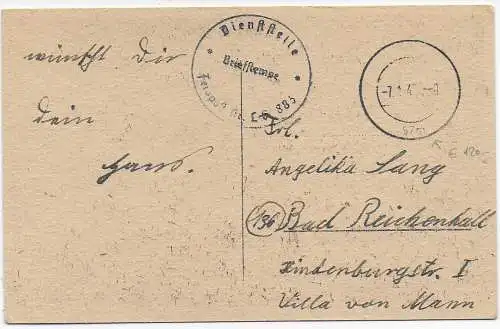 wünscht Dir
dein
Hans.
Dienststelle
Briefstempel
Feldpost Nr. L 885
-7.1.4
Frl.
Angelika Lang
(13b) Bad Reichenhall
Hindenburgstr. I
Villa von Mann
€ 120.-